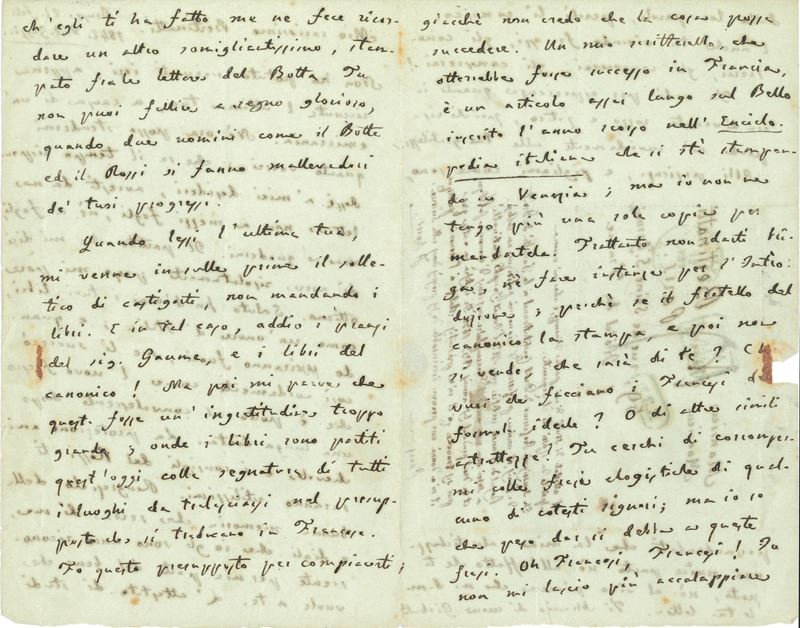 ch'egli ti ha fatto me ne fece ricor-
dare un altro somigliantissimo, stam-
pato fra le lettere del Botta. Tu
non puoi fallire a segno glorioso,
quando due uomini come il Botta
ed il Rossi si fanno mallevadori
de' tuoi progressi.
Quando lessi l'ultima tua,
mi venne in sulle prime il solle-
tico di castigarti, non mandando i
libri. E in tal caso, addio i pranzi
del sig. Gaume, e i libri del
canonico! Ma poi mi parve che
questa fosse un'ingratitudine troppo
grande; onde i libri sono partiti
quest'oggi colla segnatura di tutti
i luoghi da tralasciarsi nel presup-
posto che si traducano in Francese.
Fo questo presupposto per compiacerti;
giacchè non credo che la cosa possa
succedere. Un mio scritterello, che
otterrebbe forse successo in Francia,
è un articolo assai lungo sul Bello
inserito l'anno scorso nell'Enciclo-
pedia italiana che si sta stampan-
do in Venezia; ma io non ne
tengo più una sola copia per
mandartela. Frattanto non darti bri-
ga, nè fare instanze per l'Intro-
duzione; perchè se il fratello del
canonico la stampa, e poi non
si vende, che sarà di te? Ch
vuoi che facciano i Francesi de
formola ideale? O di altre simili
astrattezze? Tu cerchi di
mi colle frasi elogistiche di qual-
cuno di cotesti signori; ma io so
che peso dar si debba a queste
frasi. Oh Francesi, Francesi! Io
non mi lascio più accalappiare